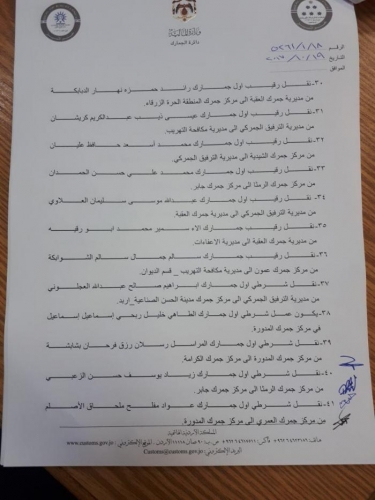 وزارة المالية
دائرة الجمارك
الرقم
التاريخ
الموافق
٣٠- نقل رقيب اول جمارك رائد حمزه نهار الدبابكة
من مديرية جمرك العقبة الى مركز جمرك المنطقة الحرة الزرقاء.
٣١- نقل رقيب اول جمارك عيسى ذيب عبدالكريم كريشان
من مديرية الترفيق الجمركي الى مديرية مكافحة التهريب.
٣٢- نقل رقيب اول جمارك محمد أسعد حافظ عليان
من مركز جمرك الشيدية الى مديرية الترفيق الجمركي.
٣٣- نقل رقيب اول جمارك محمد علي حسن الحمدان
من مركز جمرك الرمثا الى مركز جمرك جابر.
٣٤- نقل رقيب اول جمارك عبدالله موسى سليمان العلاوي
من مديرية الترفيق الجمركي الى مديرية جمرك العقبة.
٣٥- نقل رقيب جمارك الاء سمير محمد ابو رقيبه
من مديرية جمرك العقبة الى مديرية الاعفاءات.
٣٦- نقل رقيب جمارك سالم جمال سالم الشوابكة
من مركز جمرك عمون الى مديرية مكافحة التهريب _ قسم الديوان.
٣٧- نقل شرطي اول جمارك ابراهيم صالح عبدالله العجلوني
من مديرية الترفيق الجمركي الى مركز جمرك مدينة الحسن الصناعية_اربد.
٣٨- يكون عمل شرطي اول جمارك الطاهي خليل ربحي إسماعيل إسماعيل
في مركز جمرك المدورة.
٣٩- نقل شرطي اول جمارك المراسل رسلان رزق فرحان بشابشة
من مركز جمرك المدورة الى مركز جمرك الكرامة.
٤٠- نقل شرطي اول جمارك زياد يوسف حسن الزعبي
من مركز جمرك الرمثا الى مركز جمرك جابر.
٤١- نقل شرطي اول جمارك عواد مفلح ملحاق الأصلم
من مركز جمرك العمري الى مركز جمرك المدورة.
المملكة الأردنية الهاشمية
www.customs.gov.jo
Customs@customs.gov.jo